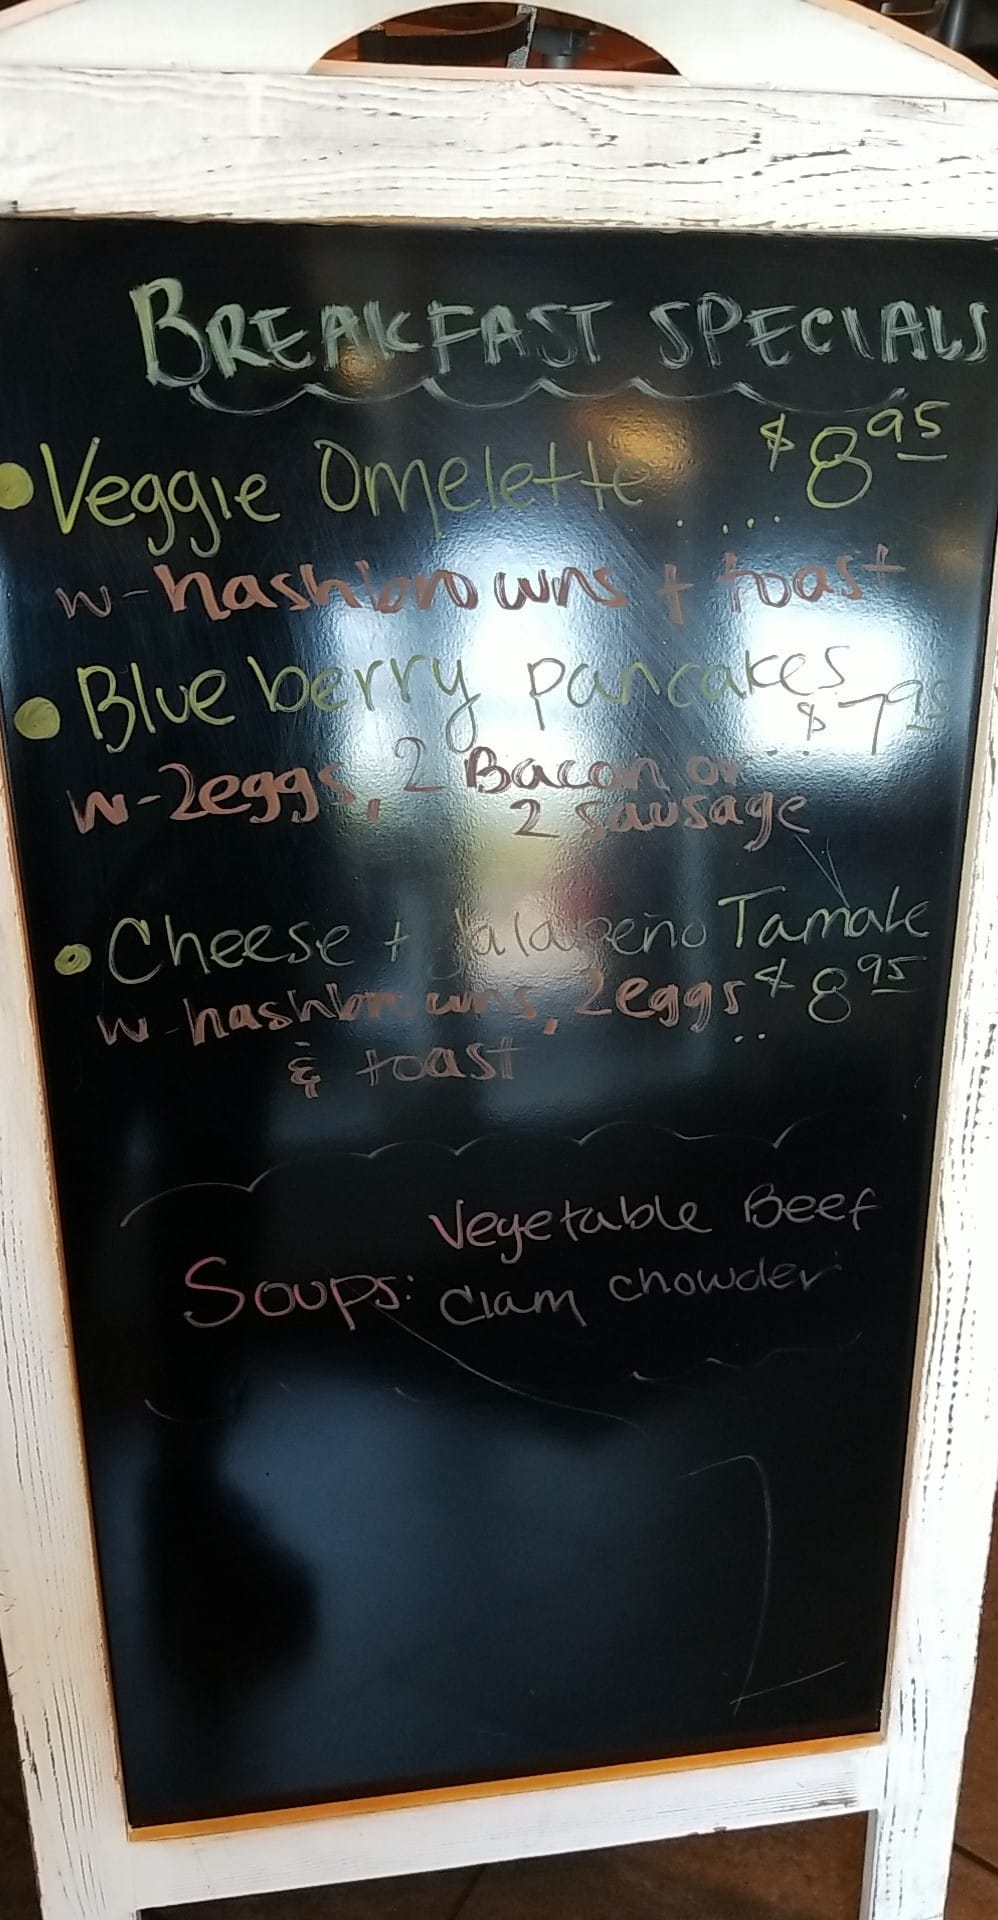 BREAKFAST SPECIALS
• Veggie Omelette .... $8.95
w- hashbrowns + toast
• Blueberry pancakes
.. $7.95
w- 2eggs, 2 Bacon or
2 sausage
• Cheese + Jalapeño Tamale
w- hashbrowns, 2eggs .. $8.95
& toast
Vegetable Beef
Soups: Clam chowder